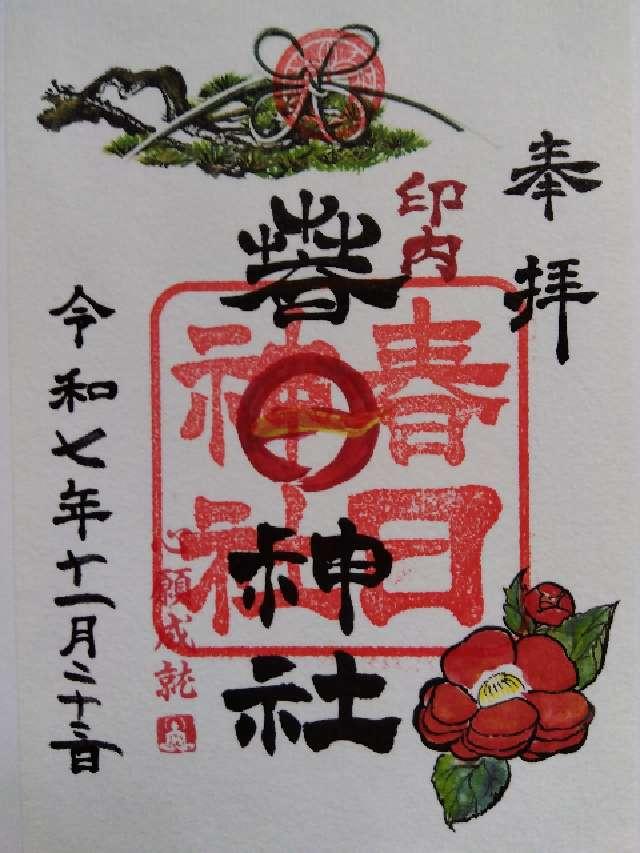 奉拝
印内
春日神社
春日神社
心願成就
令和七年十一月二十三日